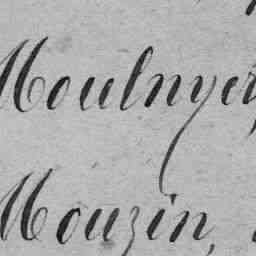 Moulnyer,
Mouzin,